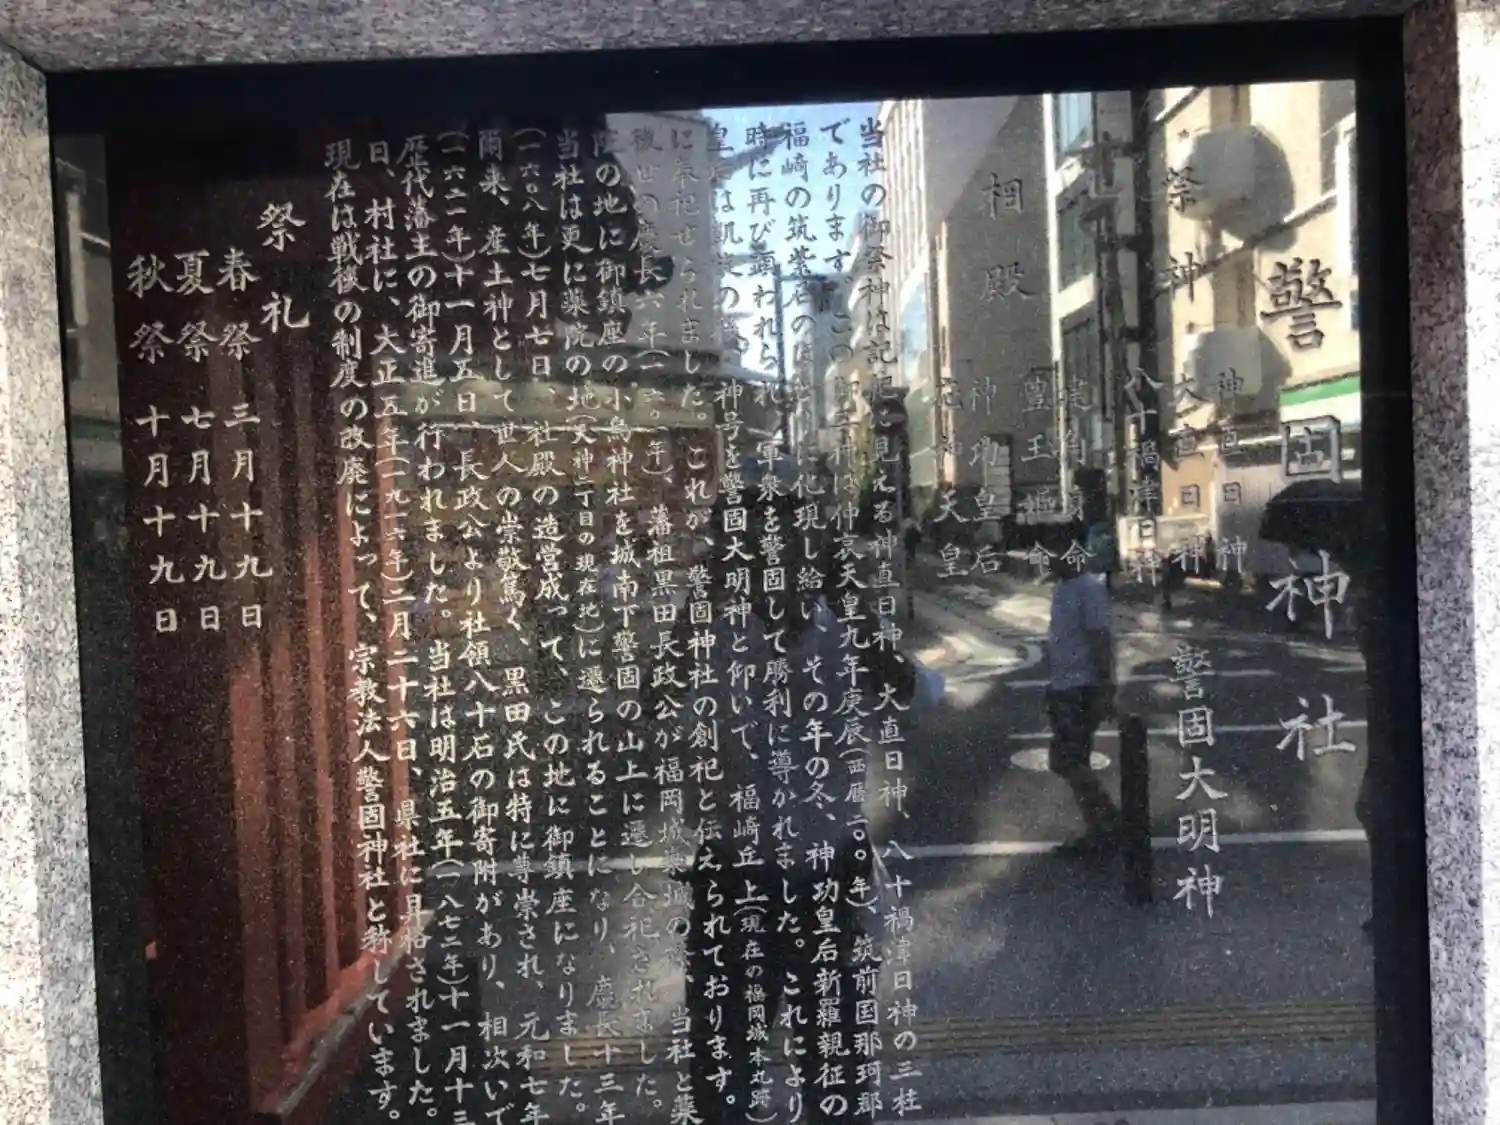 警固神社
祭神 警固大明神
神直日神
大直日神
八十禍津日神
相殿
建角身命
豊玉姫命
神功皇后
応神天皇
当社の御祭神は記紀に見える神直日神、大直日神、八十禍津日神の三柱
であります。この御三神は仲哀天皇九年庚辰(西暦二〇〇年)、筑前国那珂郡
福崎の筑紫石のほとりに化現し給い、その年の冬、神功皇后新羅親征の
時に再び顕われられ、軍衆を警固して勝利に導かれました。これにより
皇后は凱旋の後、神号を警固大明神と仰いで、福崎丘上(現在の福岡城本丸跡)
に奉祀せられました。これが、警固神社の創祀と伝えられております。
後世の慶長六年(一六〇一年)、藩祖黒田長政公が福岡城築城の際、当社と薬
院の地に御鎮座の小烏神社を城南下警固の山上に遷し合祀されました。
当社は更に薬院の地(天神二丁目の現在地)に遷られることになり、慶長十三年
(一六〇八年)七月七日、社殿の造営成って、この地に御鎮座になりました。
爾来、産土神として世人の崇敬篤く、黒田氏は特に尊崇され、元和七年
(一六二一年)十一月五日、長政公より社領八十石の御寄附があり、相次いで
歴代藩主の御寄進が行われました。当社は明治五年(一八七二年)十一月十三
日、村社に、大正五年(一九一六年)二月二十六日、県社に昇格されました。
現在は戦後の制度の改廃によって、宗教法人警固神社と称しています。
祭礼
春祭 三月十九日
夏祭 七月十九日
秋祭 十月十九日